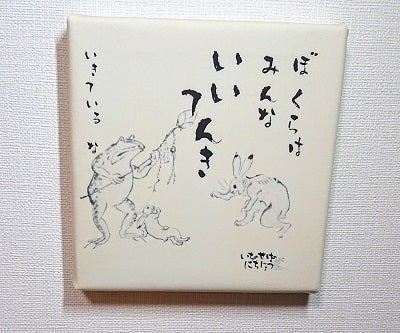 ぼくらは
みんな
いい
てんき
いきている な